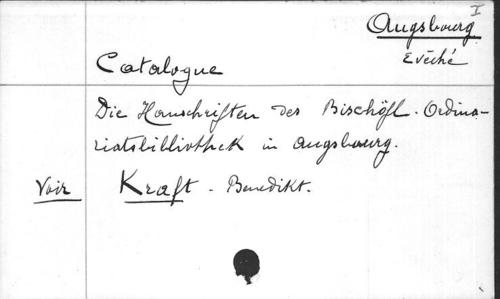 I
Augsbourg
Evêché
Catalogue
Die Hanschriften des Bischöfl. Ordina-
riatsbibliothek in Augsbourg.
Voir Kraft - Benedikt.